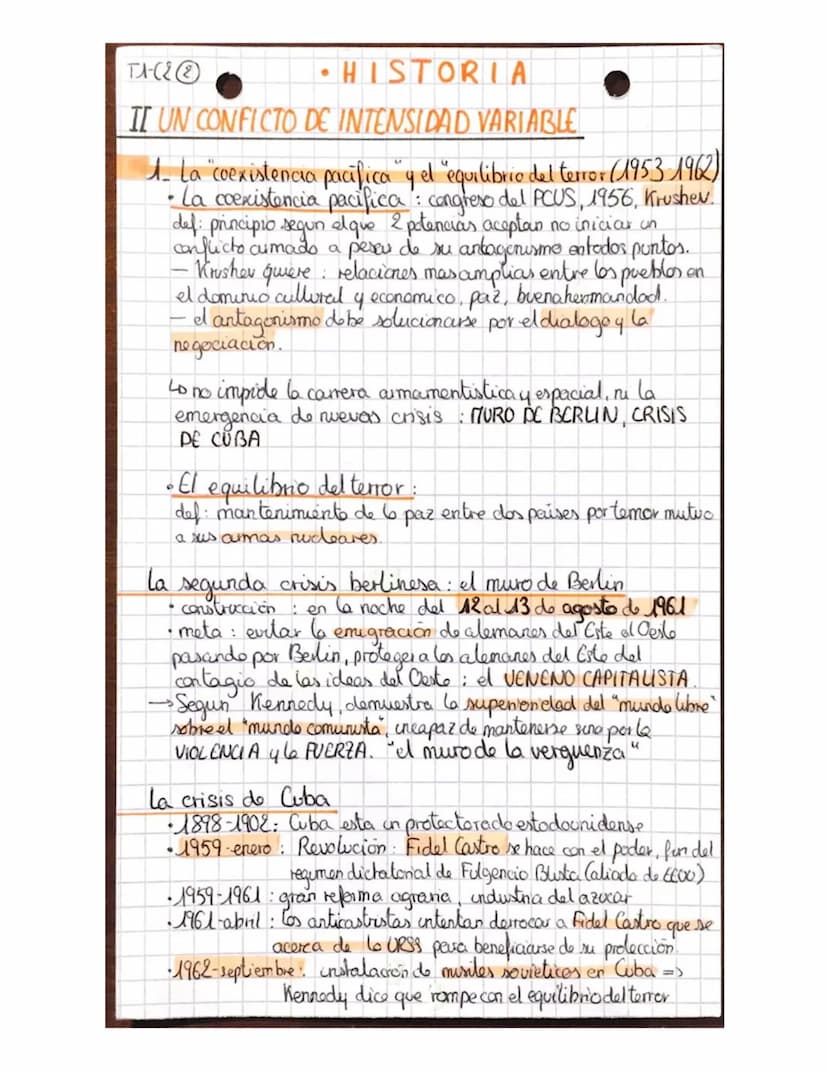 T1-C2 ②
• HISTORIA
II UN CONFICTO DE INTENSIDAD VARIABLE
1_ La "coexistencia pacifica" y el "equilibrio del terror (1953-1962)
• La coexistencia pacifica : congreso del PCUS, 1956, Krushev.
def: principio segun el que 2 potencias aceptan no iniciar un
conflicto armado a pesar de su antagonismo en todos puntos.
– Krushev quiere : relaciones mas amplias entre los pueblos en
el dominio cultural y economico, paz, buena hermandad.
– el antagonismo debe solucionarse por el dialogo y la
negociación.
↳ no impide la carrera armamentistica y espacial, ni la
emergencia de nuevas crisis : MURO DE BERLIN, CRISIS
DE CUBA
• El equilibrio del terror :
def : mantenimiento de la paz entre dos paises por temor mutuo
a sus armas nucleares.
La segunda crisis berlinesa : el muro de Berlin
• construcción : en la noche del 12 al 13 de agosto de 1961
• meta : evitar la emigración de alemanes del Este al Oeste
pasando por Berlin, proteger a los alemanes del Este del
contagio de las ideas del Oeste : el VENENO CAPITALISTA.
→ Segun Kennedy, demuestra la superioridad del "mundo libre"
sobre el "mundo comunista", incapaz de mantenerse sino por la
VIOLENCIA y la FUERZA. "el muro de la verguenza"
La crisis de Cuba
• 1898-1902 : Cuba esta un protectorado estadounidense
• 1959-enero : Revolución : Fidel Castro se hace con el poder, fin del
regimen dictatorial de Fulgencio Bista (aliado de EEUU)
• 1959-1961 : gran reforma agraria, industria del azucar
• 1961-abril : Los anticastristas intentan derrocar a Fidel Castro que se
acerca de la URSS para beneficiarse de su protección.
• 1962-septiembre : instalación de misiles sovieticos en Cuba =>
Kennedy dice que rompe con el equilibrio del terror